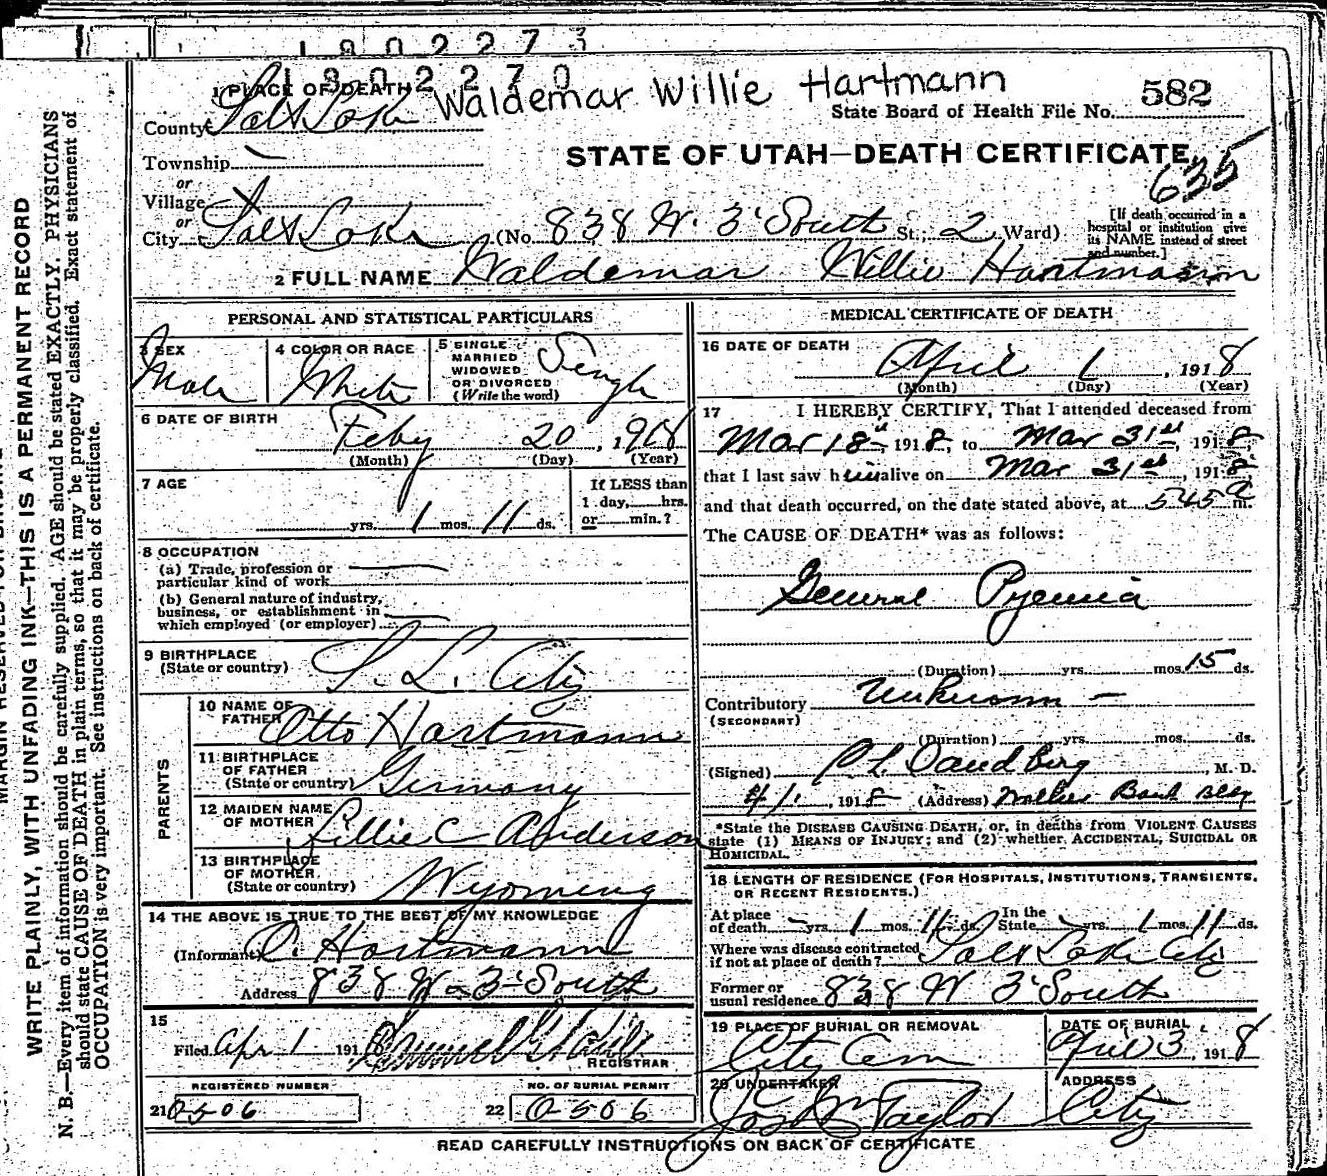 1902273
1902270
1 PLACE OF DEATH Waldemar Willie Hartmann
County Salt Lake State Board of Health File No. 582
Township
STATE OF UTAH—DEATH CERTIFICATE
635
or
Village
or
City Salt Lake (No. 838 W. 3' South St.; 2 Ward)
[If death occurred in a hospital or institution give its NAME instead of street and number.]
2 FULL NAME Waldemar Willie Hartmann
PERSONAL AND STATISTICAL PARTICULARS
3 SEX Male
4 COLOR OR RACE White
5 SINGLE MARRIED WIDOWED OR DIVORCED (Write the word) Single
6 DATE OF BIRTH Feby 20, 1918
(Month) (Day) (Year)
7 AGE
yrs. 1 mos. 11 ds.
If LESS than 1 day, hrs. or min.?
8 OCCUPATION
(a) Trade, profession or
particular kind of work
(b) General nature of industry,
business, or establishment in
which employed (or employer)
9 BIRTHPLACE
(State or country) S. L. City
PARENTS
10 NAME OF FATHER Otto Hartmann
11 BIRTHPLACE OF FATHER (State or country) Germany
12 MAIDEN NAME OF MOTHER Lillie C Anderson
13 BIRTHPLACE OF MOTHER (State or country) Wyoming
14 THE ABOVE IS TRUE TO THE BEST OF MY KNOWLEDGE
(Informant) O. Hartmann
Address 838 W 3' South
15
Filed Apr 1 191
REGISTRAR
REGISTERED NUMBER
21 0506
NO. OF BURIAL PERMIT
22 0506
MEDICAL CERTIFICATE OF DEATH
16 DATE OF DEATH
April 1, 1918
(Month) (Day) (Year)
17 I HEREBY CERTIFY, That I attended deceased from
Mar 18th, 1918, to Mar 31st, 1918
that I last saw him alive on Mar 31st, 1918
and that death occurred, on the date stated above, at 545 a m.
The CAUSE OF DEATH* was as follows:
General Pyemia
(Duration) yrs. mos. 15 ds.
Contributory Unknown —
(SECONDARY)
(Duration) yrs. mos. ds.
(Signed) , M. D.
4/1, 1918 (Address) Bank Bldg
*State the DISEASE CAUSING DEATH, or, in deaths from VIOLENT CAUSES
state (1) MEANS OF INJURY; and (2) whether ACCIDENTAL, SUICIDAL OR
HOMICIDAL.
18 LENGTH OF RESIDENCE (FOR HOSPITALS, INSTITUTIONS, TRANSIENTS,
OR RECENT RESIDENTS.)
At place of death yrs. 1 mos. 11 ds. In the State yrs. 1 mos. 11 ds.
Where was disease contracted
if not at place of death? Salt Lake City
Former or
usual residence 838 W 3' South
19 PLACE OF BURIAL OR REMOVAL
City Cem
DATE OF BURIAL
April 3, 1918
20 UNDERTAKER
Jos Wm Taylor
ADDRESS
City
READ CAREFULLY INSTRUCTIONS ON BACK OF CERTIFICATE
WRITE PLAINLY, WITH UNFADING INK—THIS IS A PERMANENT RECORD
N. B.—Every item of information should be carefully supplied. AGE should be stated EXACTLY. PHYSICIANS
should state CAUSE OF DEATH in plain terms, so that it may be properly classified. Exact statement of
OCCUPATION is very important. See instructions on back of certificate.